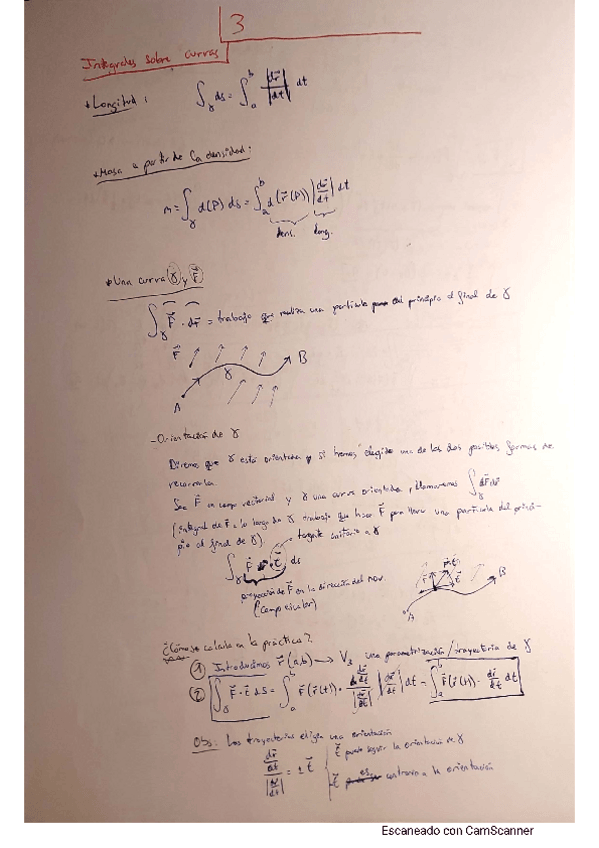 3
Integrales sobre curvas
* Longitud: ∫_γ ds = ∫_a^b |dr⃗/dt| dt
* Masa a partir de la densidad:
m = ∫_γ d(P) ds = ∫_a^b d(r⃗(t)) |dr⃗/dt| dt
dens. long.
* Una curva γ y F⃗
∫_γ F⃗ · dr⃗ = trabajo que realiza una partícula del principio al final de γ
F⃗ γ B
A
- Orientación de γ
Diremos que γ está orientada si hemos elegido una de las dos posibles formas de
recorrerla.
Sea F⃗ un campo vectorial y γ una curva orientada, llamaremos ∫_γ
(integral de F⃗ a lo largo de γ trabajo que hace F⃗ para llevar una partícula del princi-
pio al final de γ)
tangente unitario a γ
∫_γ F⃗ · t⃗ ds
proyección de F⃗ en la dirección del mov
(campo escalar)
A B
¿Cómo se calcula en la práctica?
① Introducimos r⃗ (a,b) → V₃ una parametrización/trayectoria de γ
② ∫_γ F⃗ · t⃗ ds = ∫_a^b F⃗(r⃗(t)) · (dr⃗/dt)/|dr⃗/dt| |dr⃗/dt| dt = ∫_a^b F⃗(r⃗(t)) · dr⃗/dt dt
Obs: Las trayectorias eligen una orientación
(dr⃗/dt)/|dr⃗/dt| = ± t⃗
t⃗ puede seguir la orientación de γ
-t⃗ es contrario a la orientación
Escaneado con CamScanner